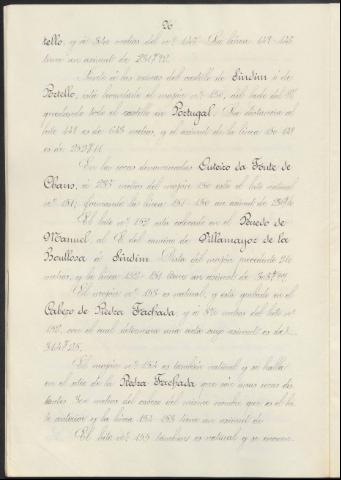 26
tello, y á 510 metros del nº 147. La línea 149-148
tiene un azimut de
Junto á las ruinas del castillo de Sindim ó de
Portello, está levantado el mojón nº 150, del lado del N
quedando todo el castillo en Portugal. Su distancia al
hito 149 es de 648 metros, y el azimut de la línea 150-149
es de
En las rocas denominadas Outeiro da Fonte de
Chans, á metros del mojón 150 está el hito natural
nº 151; formando la línea 151-150 un azimut de
El hito nº 152 está colocado en el Penedo de
Manuel, al E del camino de Villamayor de la
Boullosa á Sindim. Dista del mojón precedente 210
metros, y la línea 152-151 tiene un azimut de
El mojón nº 153 es natural, y está grabado en el
Cabezo de Piedra Fachada, y á metros del hito nº
152, con el cual determina una recta cuyo azimut es de
El mojón nº 154 es también natural y se halla
en el sitio de la Piedra Fachada que son unas rocas dis-
tantes 300 metros del cabezo del mismo nombre que es el hi-
to anterior y la línea 154-153 tiene un azimut de
El hito nº 155 también es natural y se encuen-